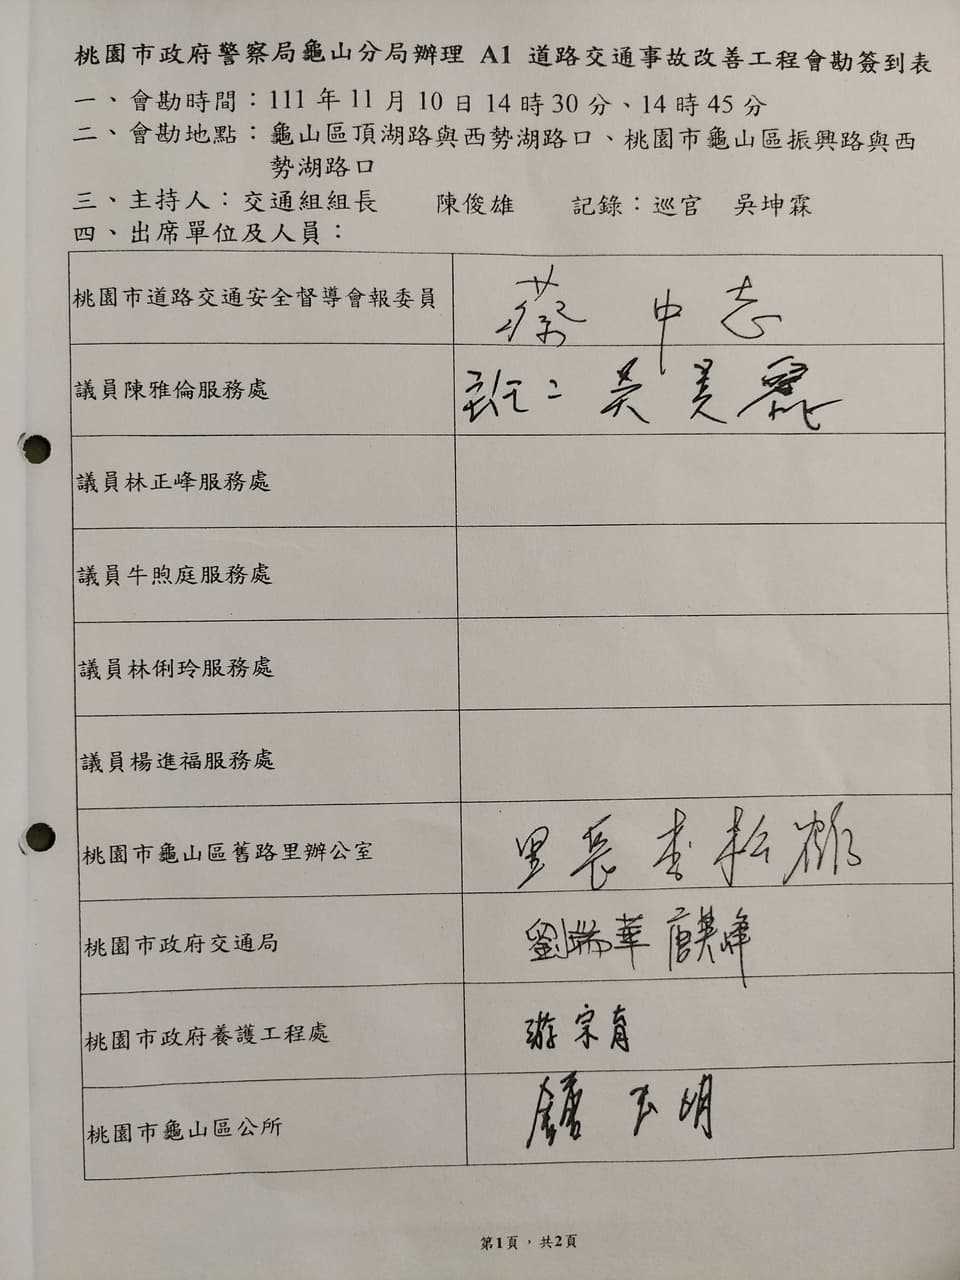 桃園市政府警察局龜山分局辦理 A1 道路交通事故改善工程會勘簽到表
一、會勘時間：111 年 11 月 10 日 14 時 30 分、14 時 45 分
二、會勘地點：龜山區頂湖路與西勢湖路口、桃園市龜山區振興路與西
勢湖路口
三、主持人：交通組組長 陳俊雄 記錄：巡官 吳坤霖
四、出席單位及人員：
桃園市道路交通安全督導會報委員 蔡中志
議員陳雅倫服務處 吳美麗
議員林正峰服務處
議員牛煦庭服務處
議員林俐玲服務處
議員楊進福服務處
桃園市龜山區舊路里辦公室 里長李松鶴
桃園市政府交通局 劉瑞華
桃園市政府養護工程處 游宗育
桃園市龜山區公所 明
第1頁，共2頁